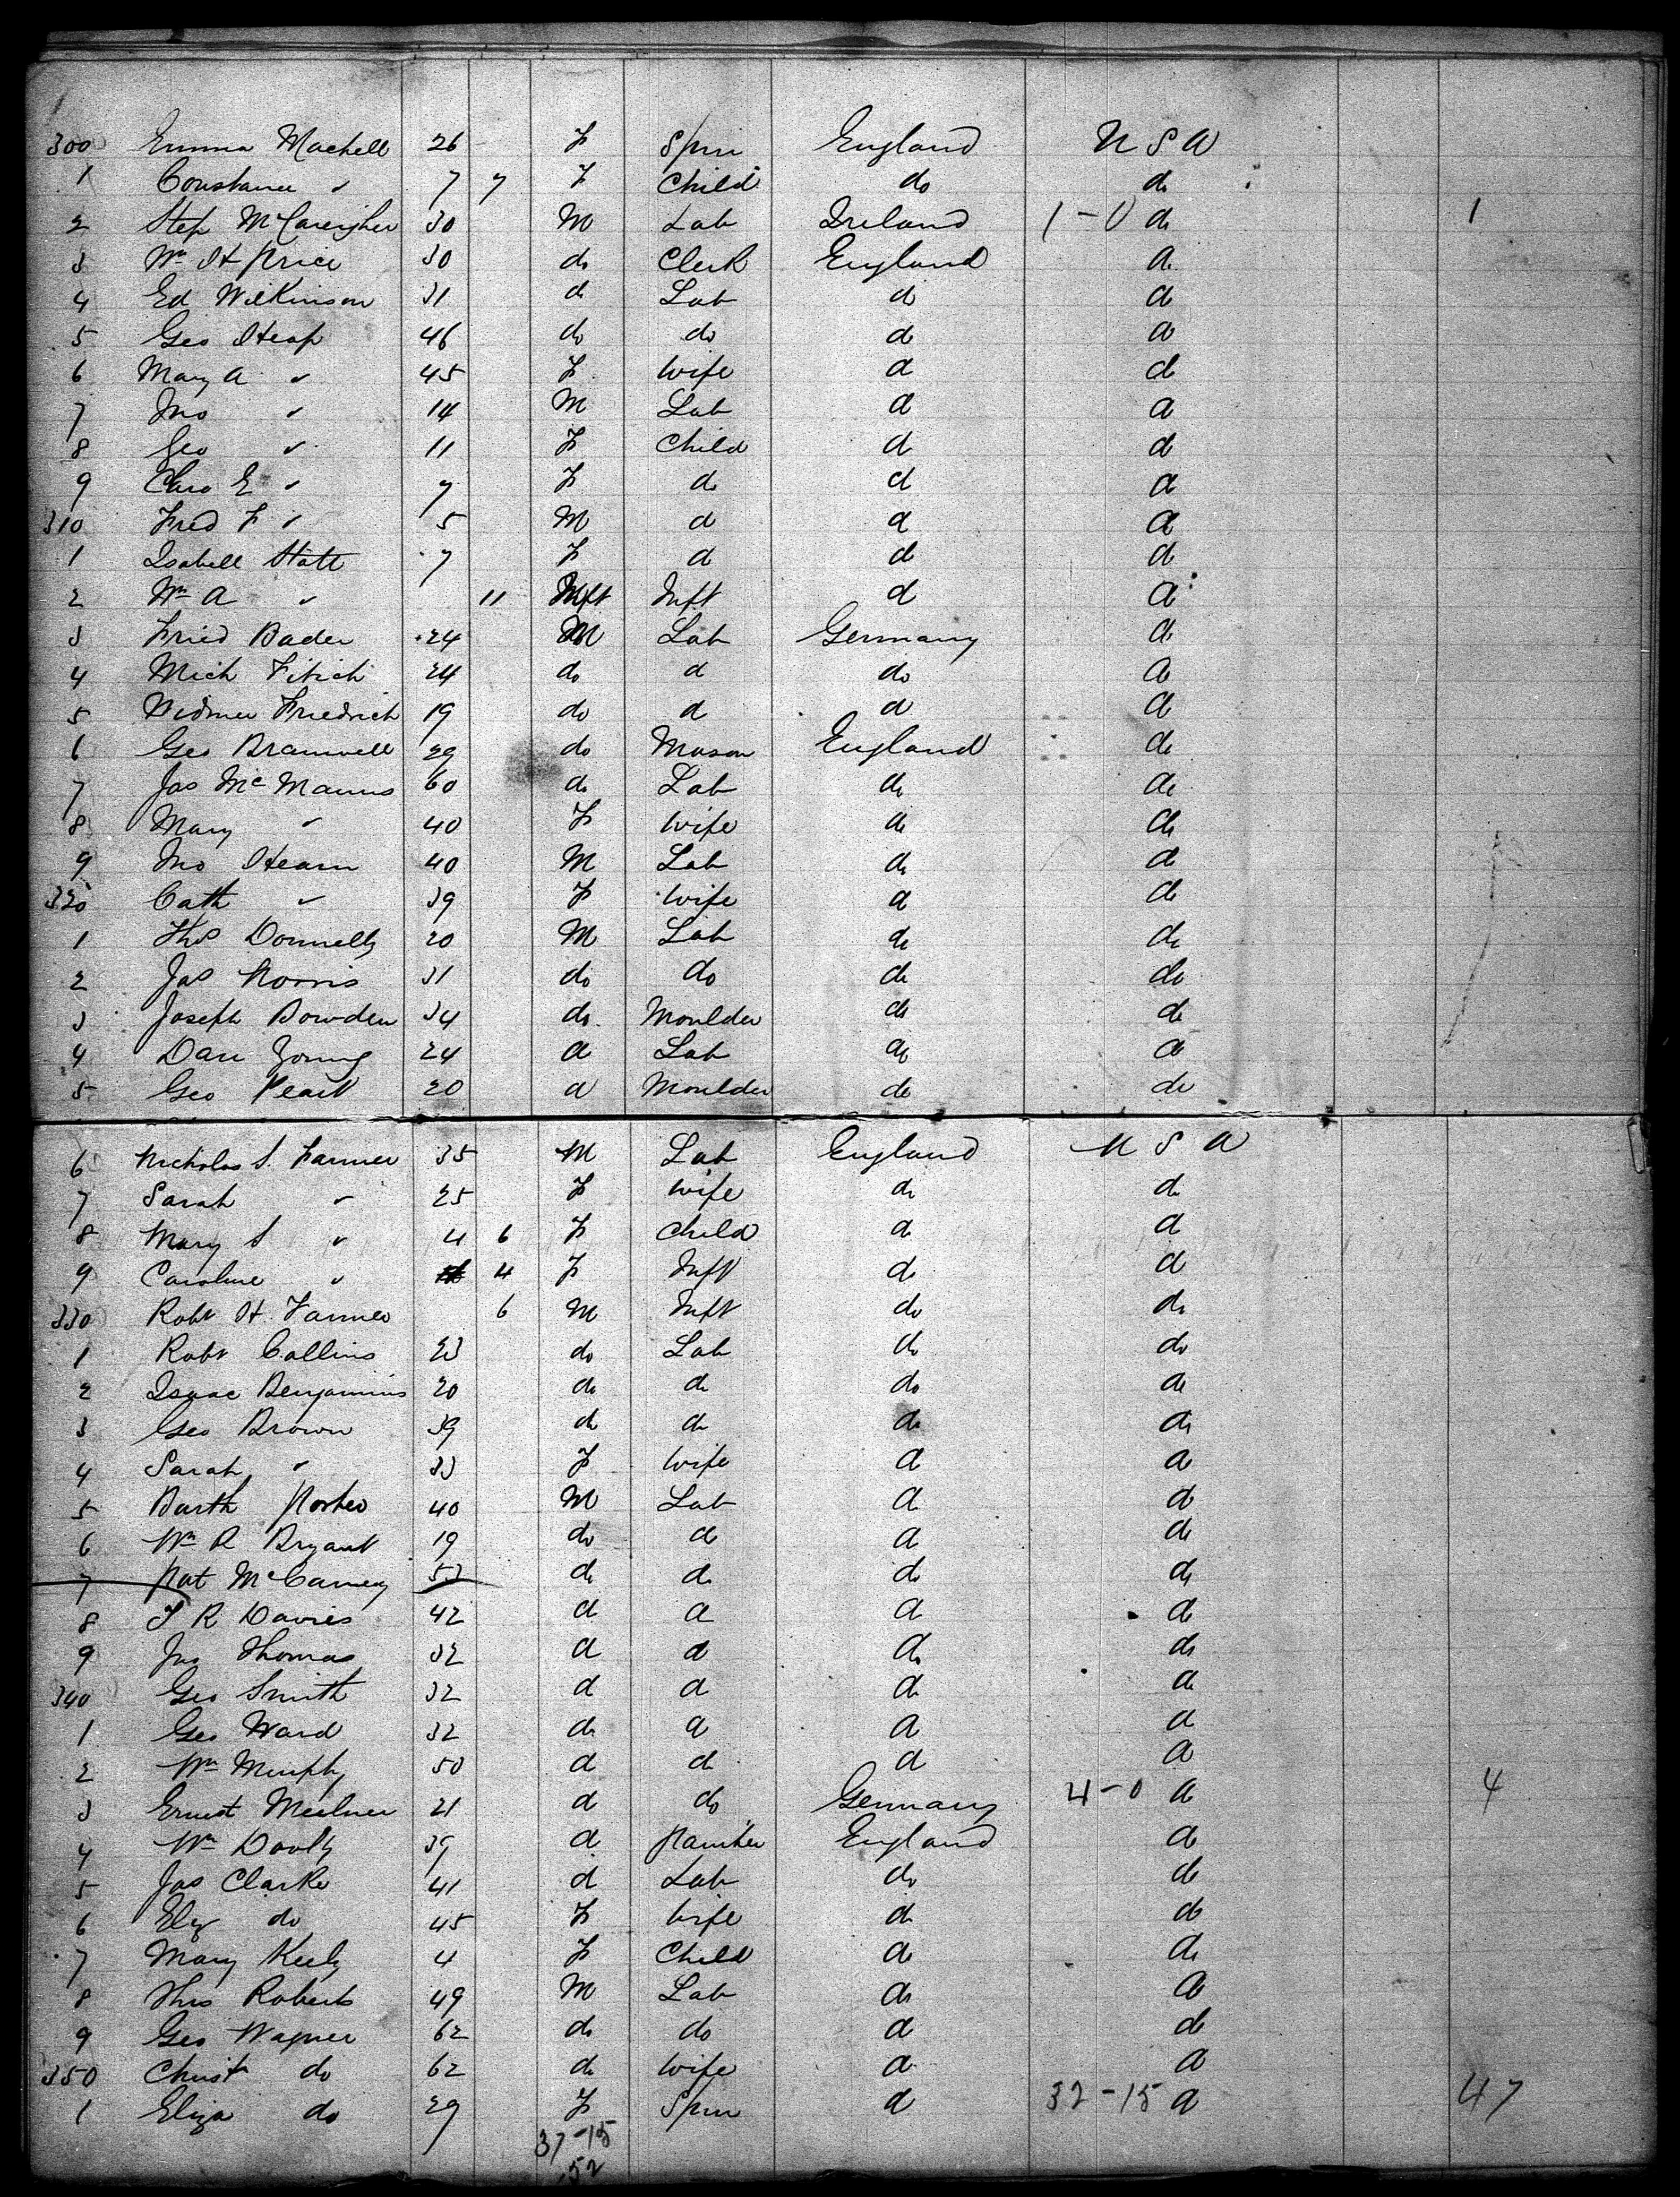 300 Emma Machell 26 F Spin England U S A
1 Constance " 7 7 F Child do do
2 Step 30 M Lab Ireland 1-0 do 1
3 Wm H Price 30 do Clerk England do
4 Ed Wilkinson 31 do Lab do do
5 Geo Heap 46 do do do do
6 Mary A " 45 F Wife do do
7 Jno " 14 M Lab do do
8 Geo " 11 F Child do do
9 E " 7 F do do do
310 Fred F " 5 M do do do
1 Isabell Statt 7 F do do do
2 Wm A " 11 Inft do do
3 Fried Bader 24 M Lab Germany do
4 Mich 24 do do do do
5 Widmer Friedrich 19 do do do do
6 Geo Bramwell 29 do Mason England do
7 Jas McManus 60 do Lab do do
8 Mary " 40 F Wife do do
9 Jno Hearn 40 M Lab do do
320 Cath " 39 F Wife do do
1 Thos Donnelly 20 M Lab do do
2 Jas Norris 31 do do do do
3 Joseph Bowden 34 do Moulder do do
4 Dan Young 24 do Lab do do
5 Geo 20 do Moulder do do
6 Nicholas S. Farmer 35 M Lab England U S A
7 Sarah " 25 F Wife do do
8 Mary S " 4 6 F Child do do
9 Caroline " 4 F Inft do do
330 Robt H. Farmer 6 M Inft do do
1 Robt Collins 23 do Lab do do
2 Isaac Benjamins 20 do do do do
3 Geo Brown 39 do do do do
4 Sarah " 33 F Wife do do
5 Barth Porter 40 M Lab do do
6 Wm R Bryant 19 do do do do
7 Pat McCamey 53 do do do do
8 J R Davies 42 do do do do
9 Jno Thomas 32 do do do do
340 Geo Smith 32 do do do do
1 Geo Ward 32 do do do do
2 Wm Murphy 50 do do do do
3 Ernest Meilner 21 do do Germany 4-0 do 4
4 Wm 39 do Painter England do
5 Jas Clarke 41 do Lab do do
6 Eliz do 45 F Wife do do
7 Mary Keely 4 F Child do do
8 Thos Roberts 49 M Lab do do
9 Geo Wagner 62 do do do do
350 Christ do 62 do Wife do do
1 Eliza do 29 F Spin do 32-15 do 47
37-15
52